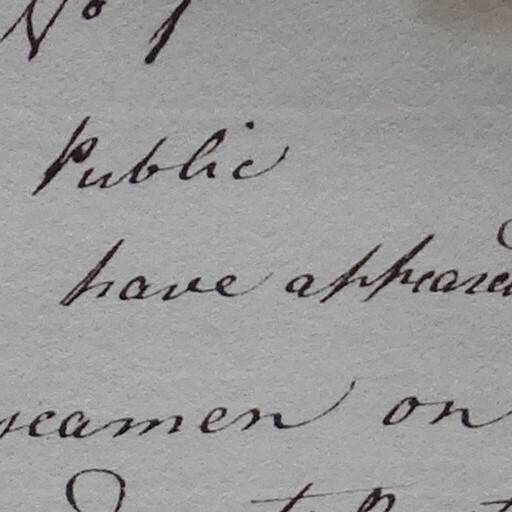 No 1
Public
have appeared
seamen on